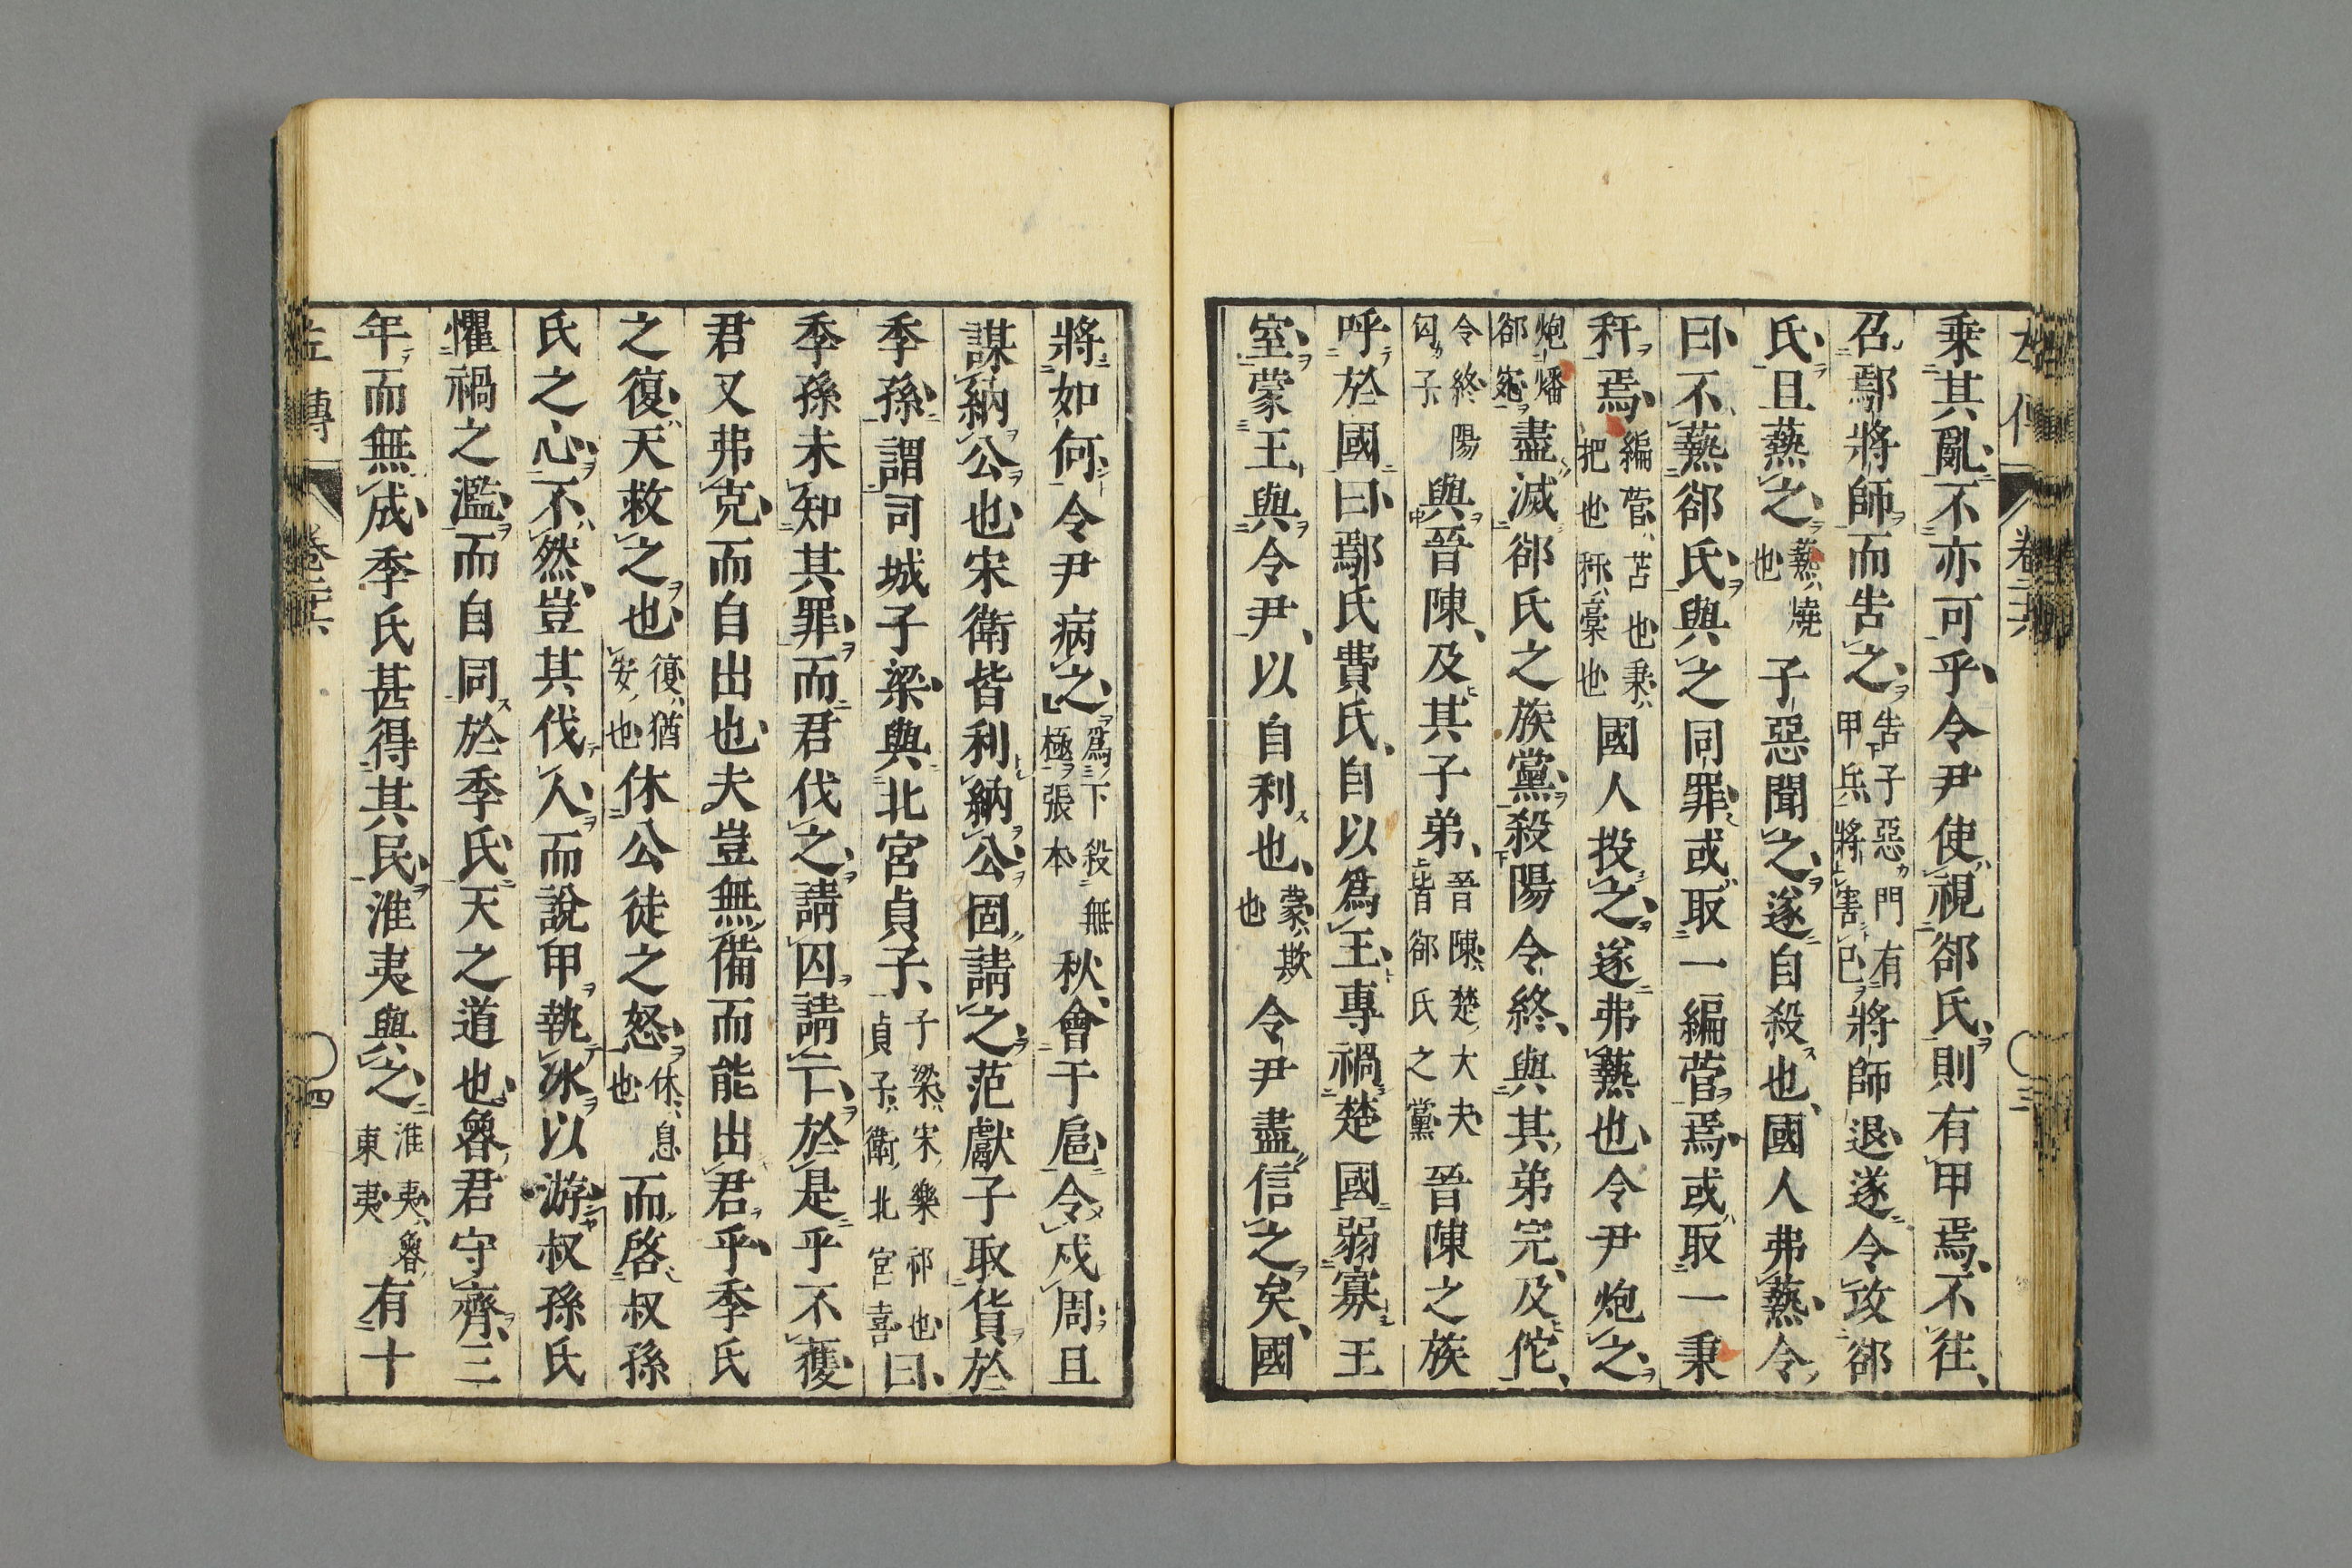 乗其亂不亦可乎令尹使視郤氏則有甲焉不往
召鄢將師而告之告子惡門有甲兵將害己將師退遂令攻郤
氏且爇之爇燒也子惡聞之遂自殺也國人弗爇令
曰不爇郤氏與之同罪或取一編菅焉或取一秉
秆焉編菅苫也秉把也秆稾也國人投之遂弗爇也令尹炮之
炮燔郤宛盡滅郤氏之族黨殺陽令終與其弟完及佗
令終陽匃子與晉陳及其子弟晉陳楚大夫皆郤氏之黨晉陳之族
呼於國曰鄢氏費氏自以爲王專禍楚國弱寡王
室蒙王與令尹以自利也蒙欺也令尹盡信之矣國
將如何令尹病之爲下殺無極張本秋會于扈令戍周且
謀納公也宋衛皆利納公固請之范獻子取貨於
季孫謂司城子梁與北宮貞子子梁宋樂祁也貞子衛北宮喜曰
季孫未知其罪而君伐之請囚請亡於是乎不獲
君又弗克而自出也夫豈無備而能出君乎季氏
之復天救之也復猶安也休公徒之怒休息也而啓叔孫
氏之心不然豈其伐人而說甲執冰以游叔孫氏
懼禍之濫而自同於季氏天之道也魯君守齊三
年而無成季氏甚得其民淮夷與之淮夷魯東夷有十
左傳 卷二十六 四